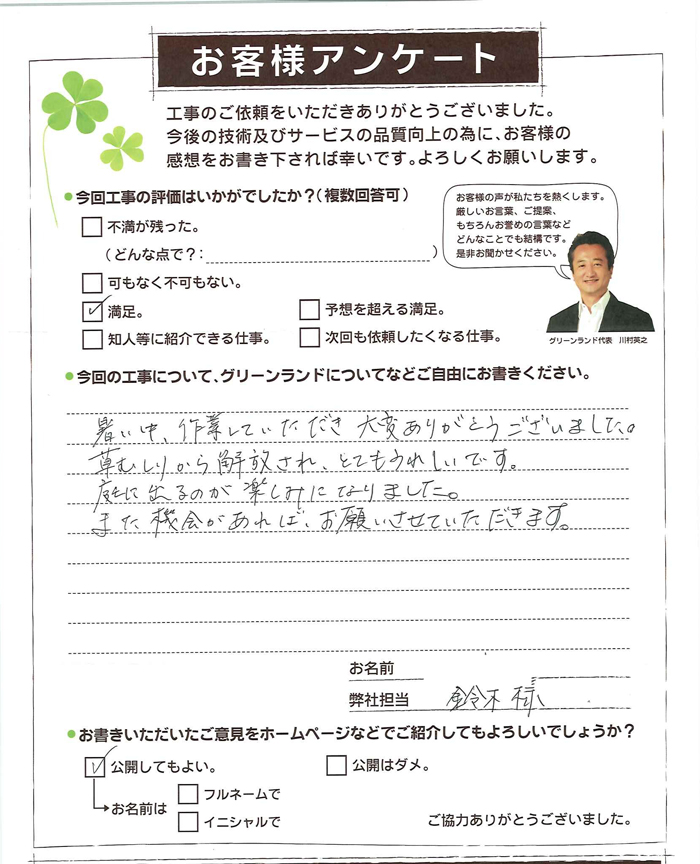 お客様アンケート
工事のご依頼をいただきありがとうございました。
今後の技術及びサービスの品質向上の為に、お客様の
感想をお書き下されば幸いです。よろしくお願いします。
今回工事の評価はいかがでしたか？（複数回答可）
不満が残った。
（どんな点で？：　）
可もなく不可もない。
満足。
予想を超える満足。
知人等に紹介できる仕事。
次回も依頼したくなる仕事。
お客様の声が私たちを熱くします。
厳しいお言葉、ご提案、
もちろんお誉めの言葉など
どんなことでも結構です。
是非お聞かせください。
グリーンランド代表　川村英之
今回の工事について、グリーンランドについてなどご自由にお書きください。
暑い中、作業していただき 大変ありがとうございました。
草むしりから解放され、とてもうれしいです。
庭に出るのが楽しみになりました。
また機会があれば、お願いさせていただきます。
お名前
弊社担当　鈴木 様
お書きいただいたご意見をホームページなどでご紹介してもよろしいでしょうか？
公開してもよい。
公開はダメ。
お名前は
フルネームで
イニシャルで
ご協力ありがとうございました。